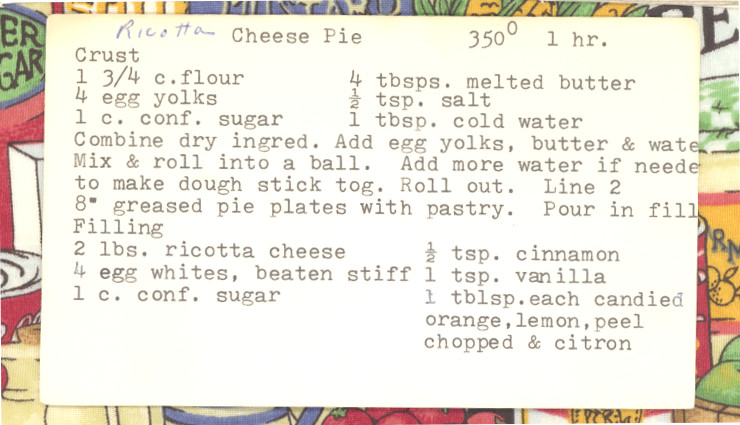 Ricotta Cheese Pie 350⁰ 1 hr.
Crust
1 3/4 c.flour 4 tbsps. melted butter
4 egg yolks ½ tsp. salt
1 c. conf. sugar 1 tbsp. cold water
Combine dry ingred. Add egg yolks, butter & wate
Mix & roll into a ball. Add more water if neede
to make dough stick tog. Roll out. Line 2
8" greased pie plates with pastry. Pour in fill
Filling
2 lbs. ricotta cheese ½ tsp. cinnamon
4 egg whites, beaten stiff 1 tsp. vanilla
1 c. conf. sugar 1 tblsp.each candied
orange,lemon,peel
chopped & citron
ER
GAR
PE
RN